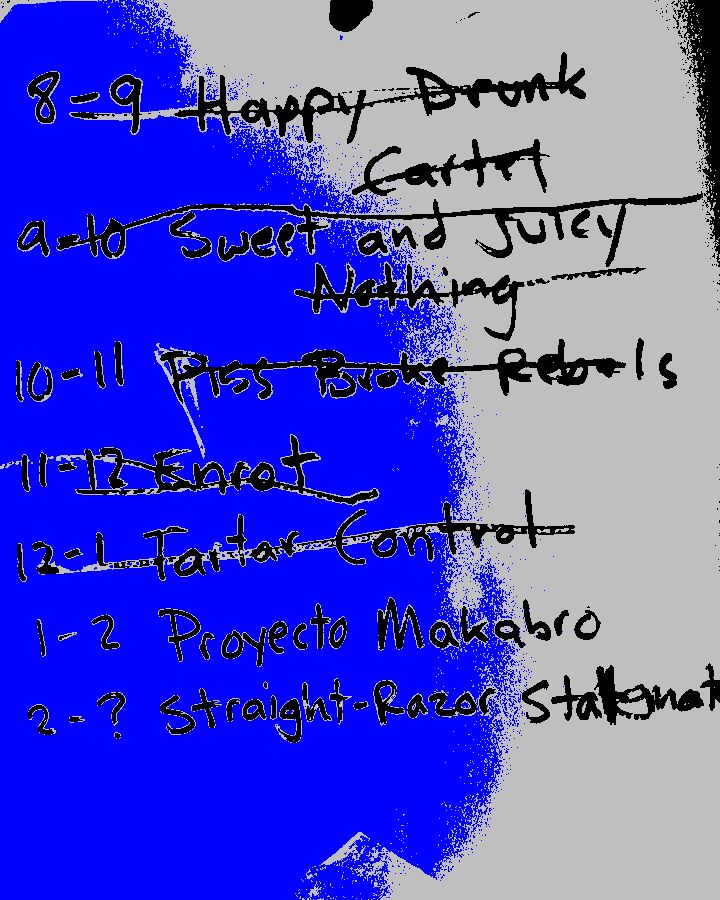 8-9 Happy Drunk
Cartel
9-10 Sweet and Juicy
Nothing
10-11 Piss Broke Rebels
11-12 Enrot
12-1 Tartar Control
1-2 Proyecto Makabro
2-? Straight-Razor